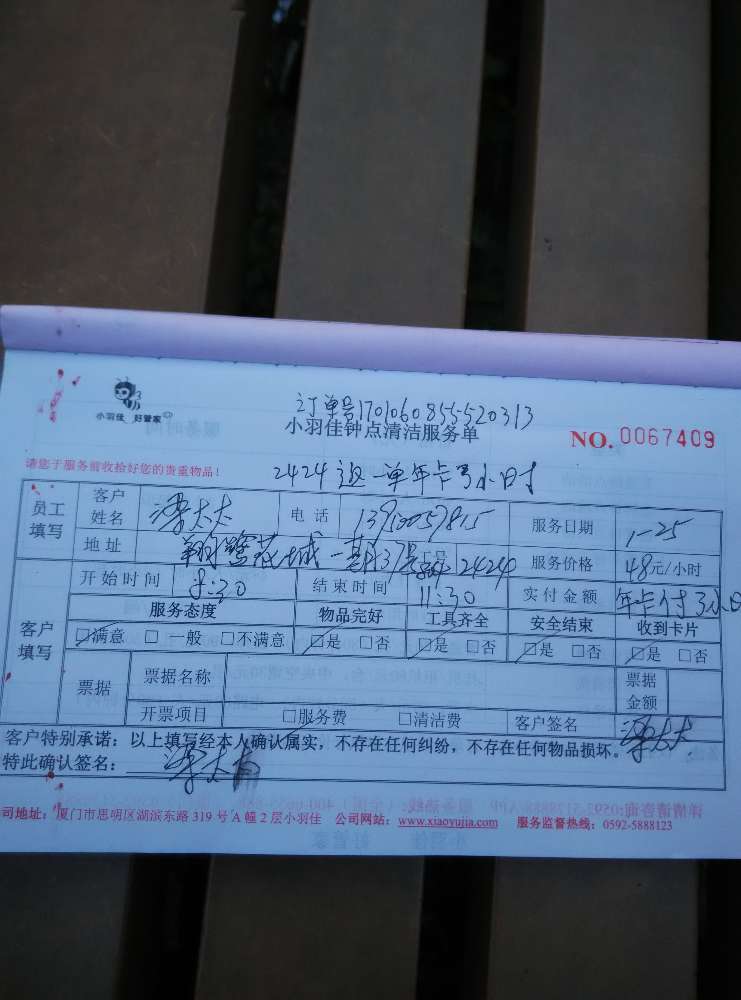 订单号1701060855520313
小羽佳 好管家
小羽佳钟点清洁服务单
NO. 0067409
请您于服务前收捡好您的贵重物品!
2424 这一单年卡3小时
员工填写 客户姓名 太太 电话 服务日期 1-25
地址 翔鹭花城一期37号 工号 2424 服务价格 48元/小时
开始时间 8:30 结束时间 11:30 实付金额 年卡付3小时
客户填写 服务态度 物品完好 工具齐全 安全结束 收到卡片
□满意 □一般 □不满意 □是 □否 □是 □否 □是 □否 □是 □否
票据 票据名称 票据金额
开票项目 □服务费 □清洁费 客户签名 太太
客户特别承诺:以上填写经本人确认属实,不存在任何纠纷,不存在任何物品损坏。
特此确认签名: 太太
司地址:厦门市思明区湖滨东路 319 号 A 幢 2 层小羽佳 公司网站:www.xiaoyujia.com 服务监督热线:0592-5888123